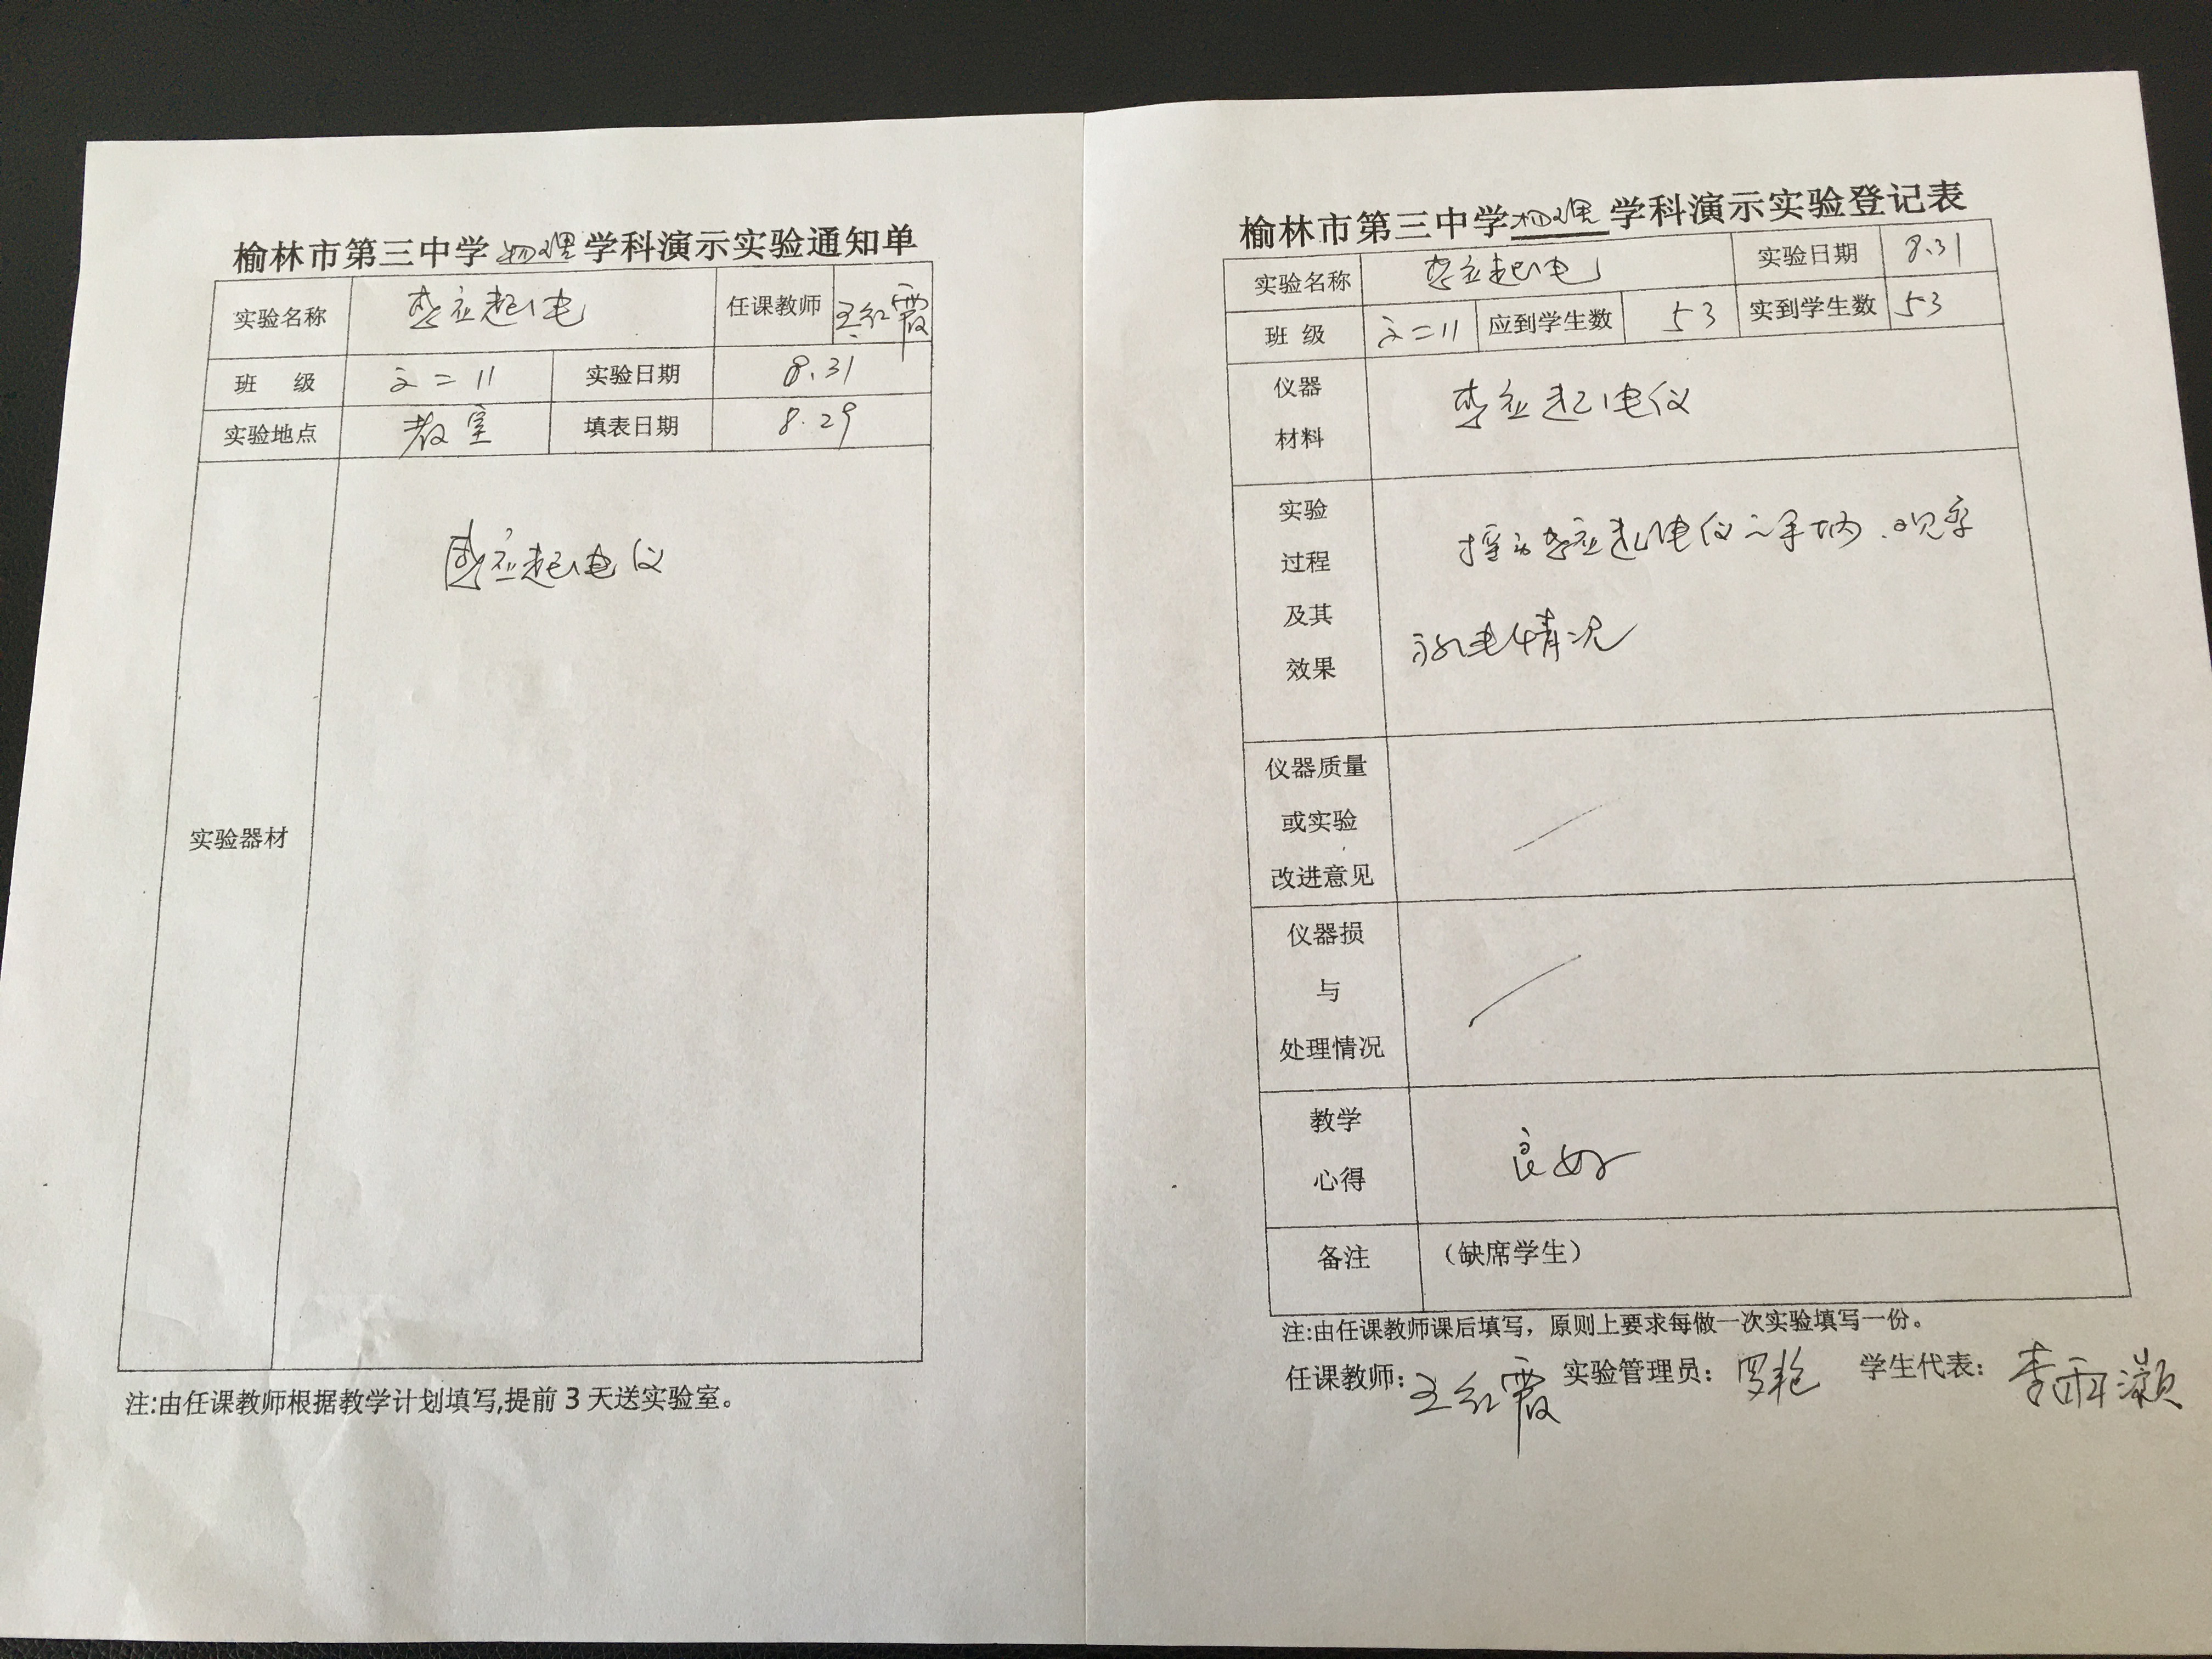 榆林市第三中学物理学科演示实验通知单
实验名称 感应起电 任课教师 王红霞
班 级 高二11 实验日期 8.31
实验地点 教室 填表日期 8.29
实验器材 感应起电仪
注:由任课教师根据教学计划填写,提前3天送实验室。
榆林市第三中学物理学科演示实验登记表
实验名称 感应起电 实验日期 8.31
班 级 高二11 应到学生数 53 实到学生数 53
仪器
材料
感应起电仪
实验
过程
及其
效果
摇动感应起电仪之手柄.观察
放电情况
仪器质量
或实验
改进意见
仪器损
与
处理情况
教学
心得
良好
备注 (缺席学生)
注:由任课教师课后填写，原则上要求每做一次实验填写一份。
任课教师:王红霞 实验管理员:罗艳 学生代表:李雨灏